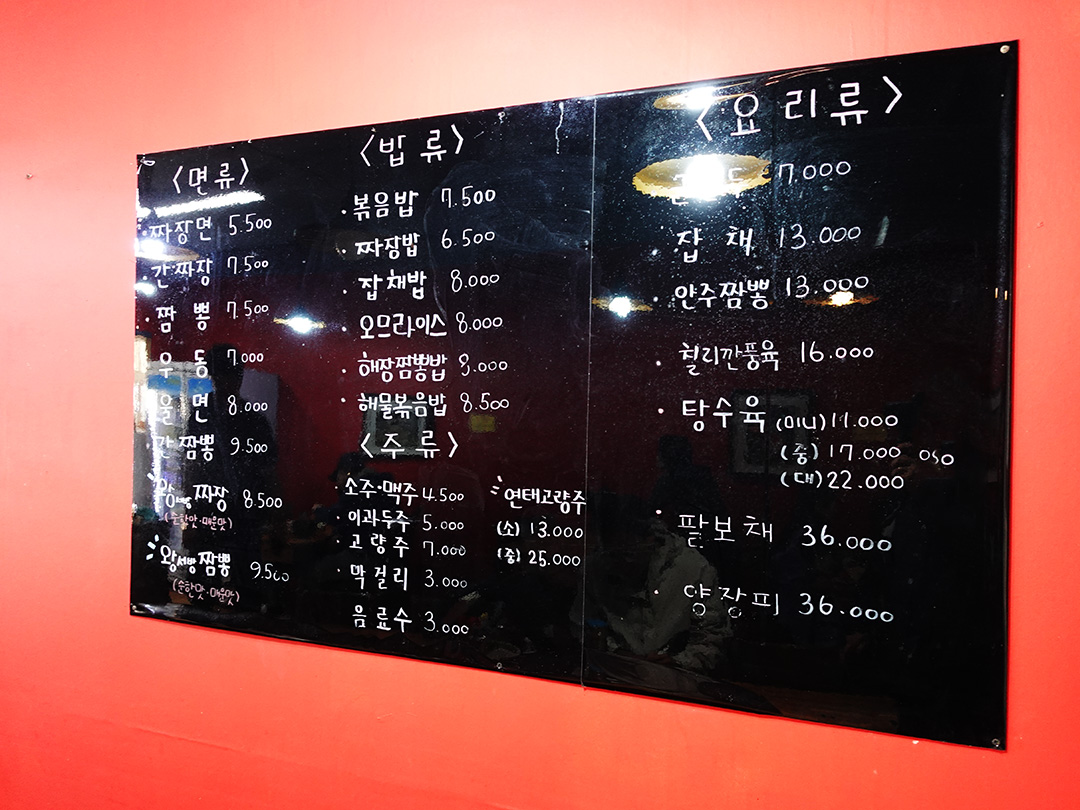 <면류>
짜장면 5.500
간짜장 7.500
짬뽕 7.500
우동 7.000
울면 8.000
간짬뽕 9.500
짜장 8.500
(순한맛·매운맛)
왕서방짬뽕 9.500
(순한맛·매운맛)
<밥류>
볶음밥 7.500
짜장밥 6.500
잡채밥 8.000
오므라이스 8.000
해장짬뽕밥 8.000
해물볶음밥 8.500
<주류>
소주·맥주 4.500
이과두주 5.000
고량주 7.000
막걸리 3.000
음료수 3.000
연태고량주
(소) 13.000
(중) 25.000
<요리류>
7.000
잡채 13.000
안주짬뽕 13.000
칠리깐풍육 16.000
탕수육 (미니) 11.000
(중) 17.000
(대) 22.000
팔보채 36.000
양장피 36.000